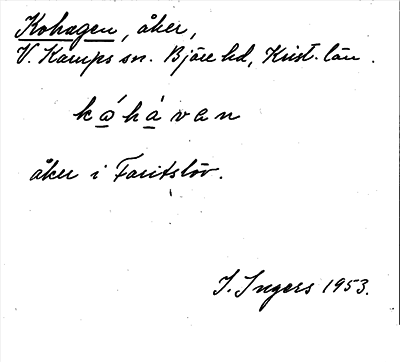 Kohagen, åker,
V. Karups sn. Bjäre hd, Krist. län.
kǻhàvan
åker i Faritslöv.
I. Ingers 1953.